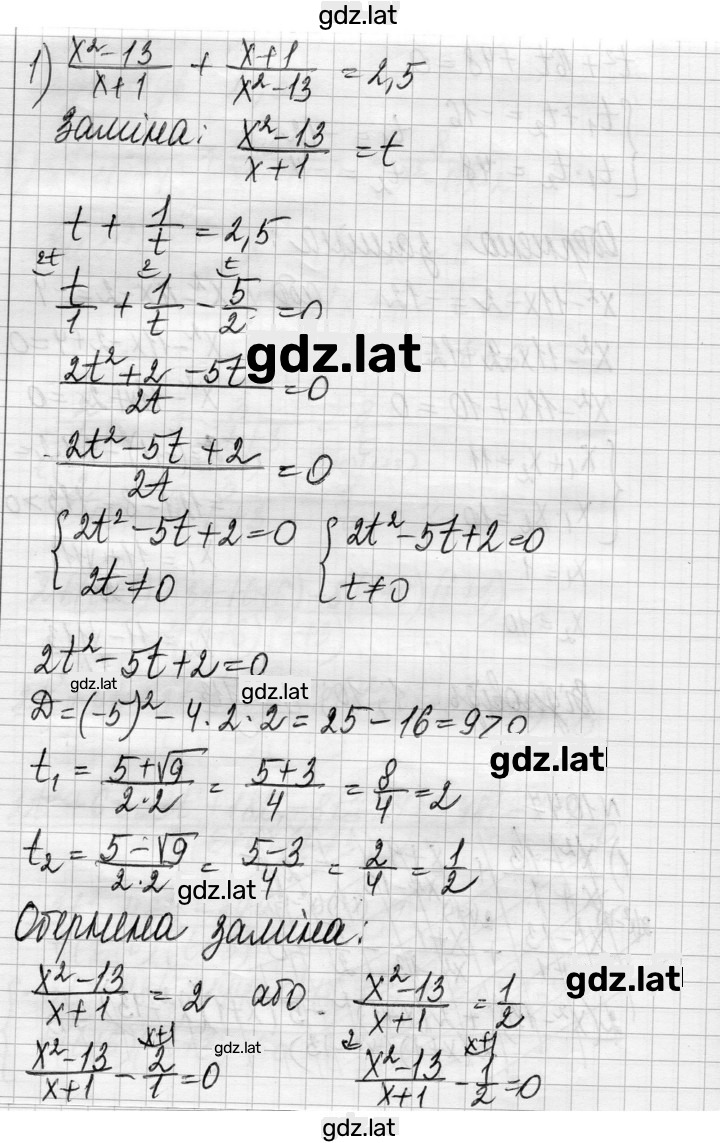 gdz.lat
1) (x²-13)/(x+1) + (x+1)/(x²-13) = 2,5
Заміна: (x²-13)/(x+1) = t
t + 1/t = 2,5
2t 2 t
t/1 + 1/t - 5/2 = 0
gdz.lat
(2t²+2-5t)/2t = 0
(2t²-5t+2)/2t = 0
{2t²-5t+2=0 {2t²-5t+2=0
2t≠0 t≠0
2t²-5t+2=0
gdz.lat gdz.lat
D=(-5)²-4·2·2=25-16=9>0
gdz.lat
t₁ = (5+√9)/(2·2) = (5+3)/4 = 8/4 = 2
t₂ = (5-√9)/(2·2) = (5-3)/4 = 2/4 = 1/2
gdz.lat
Обернена заміна:
gdz.lat
(x²-13)/(x+1) = 2 або (x²-13)/(x+1) = 1/2
x+1 gdz.lat 2 x+1
(x²-13)/(x+1) - 2/1 = 0 (x²-13)/(x+1) - 1/2 = 0
gdz.lat